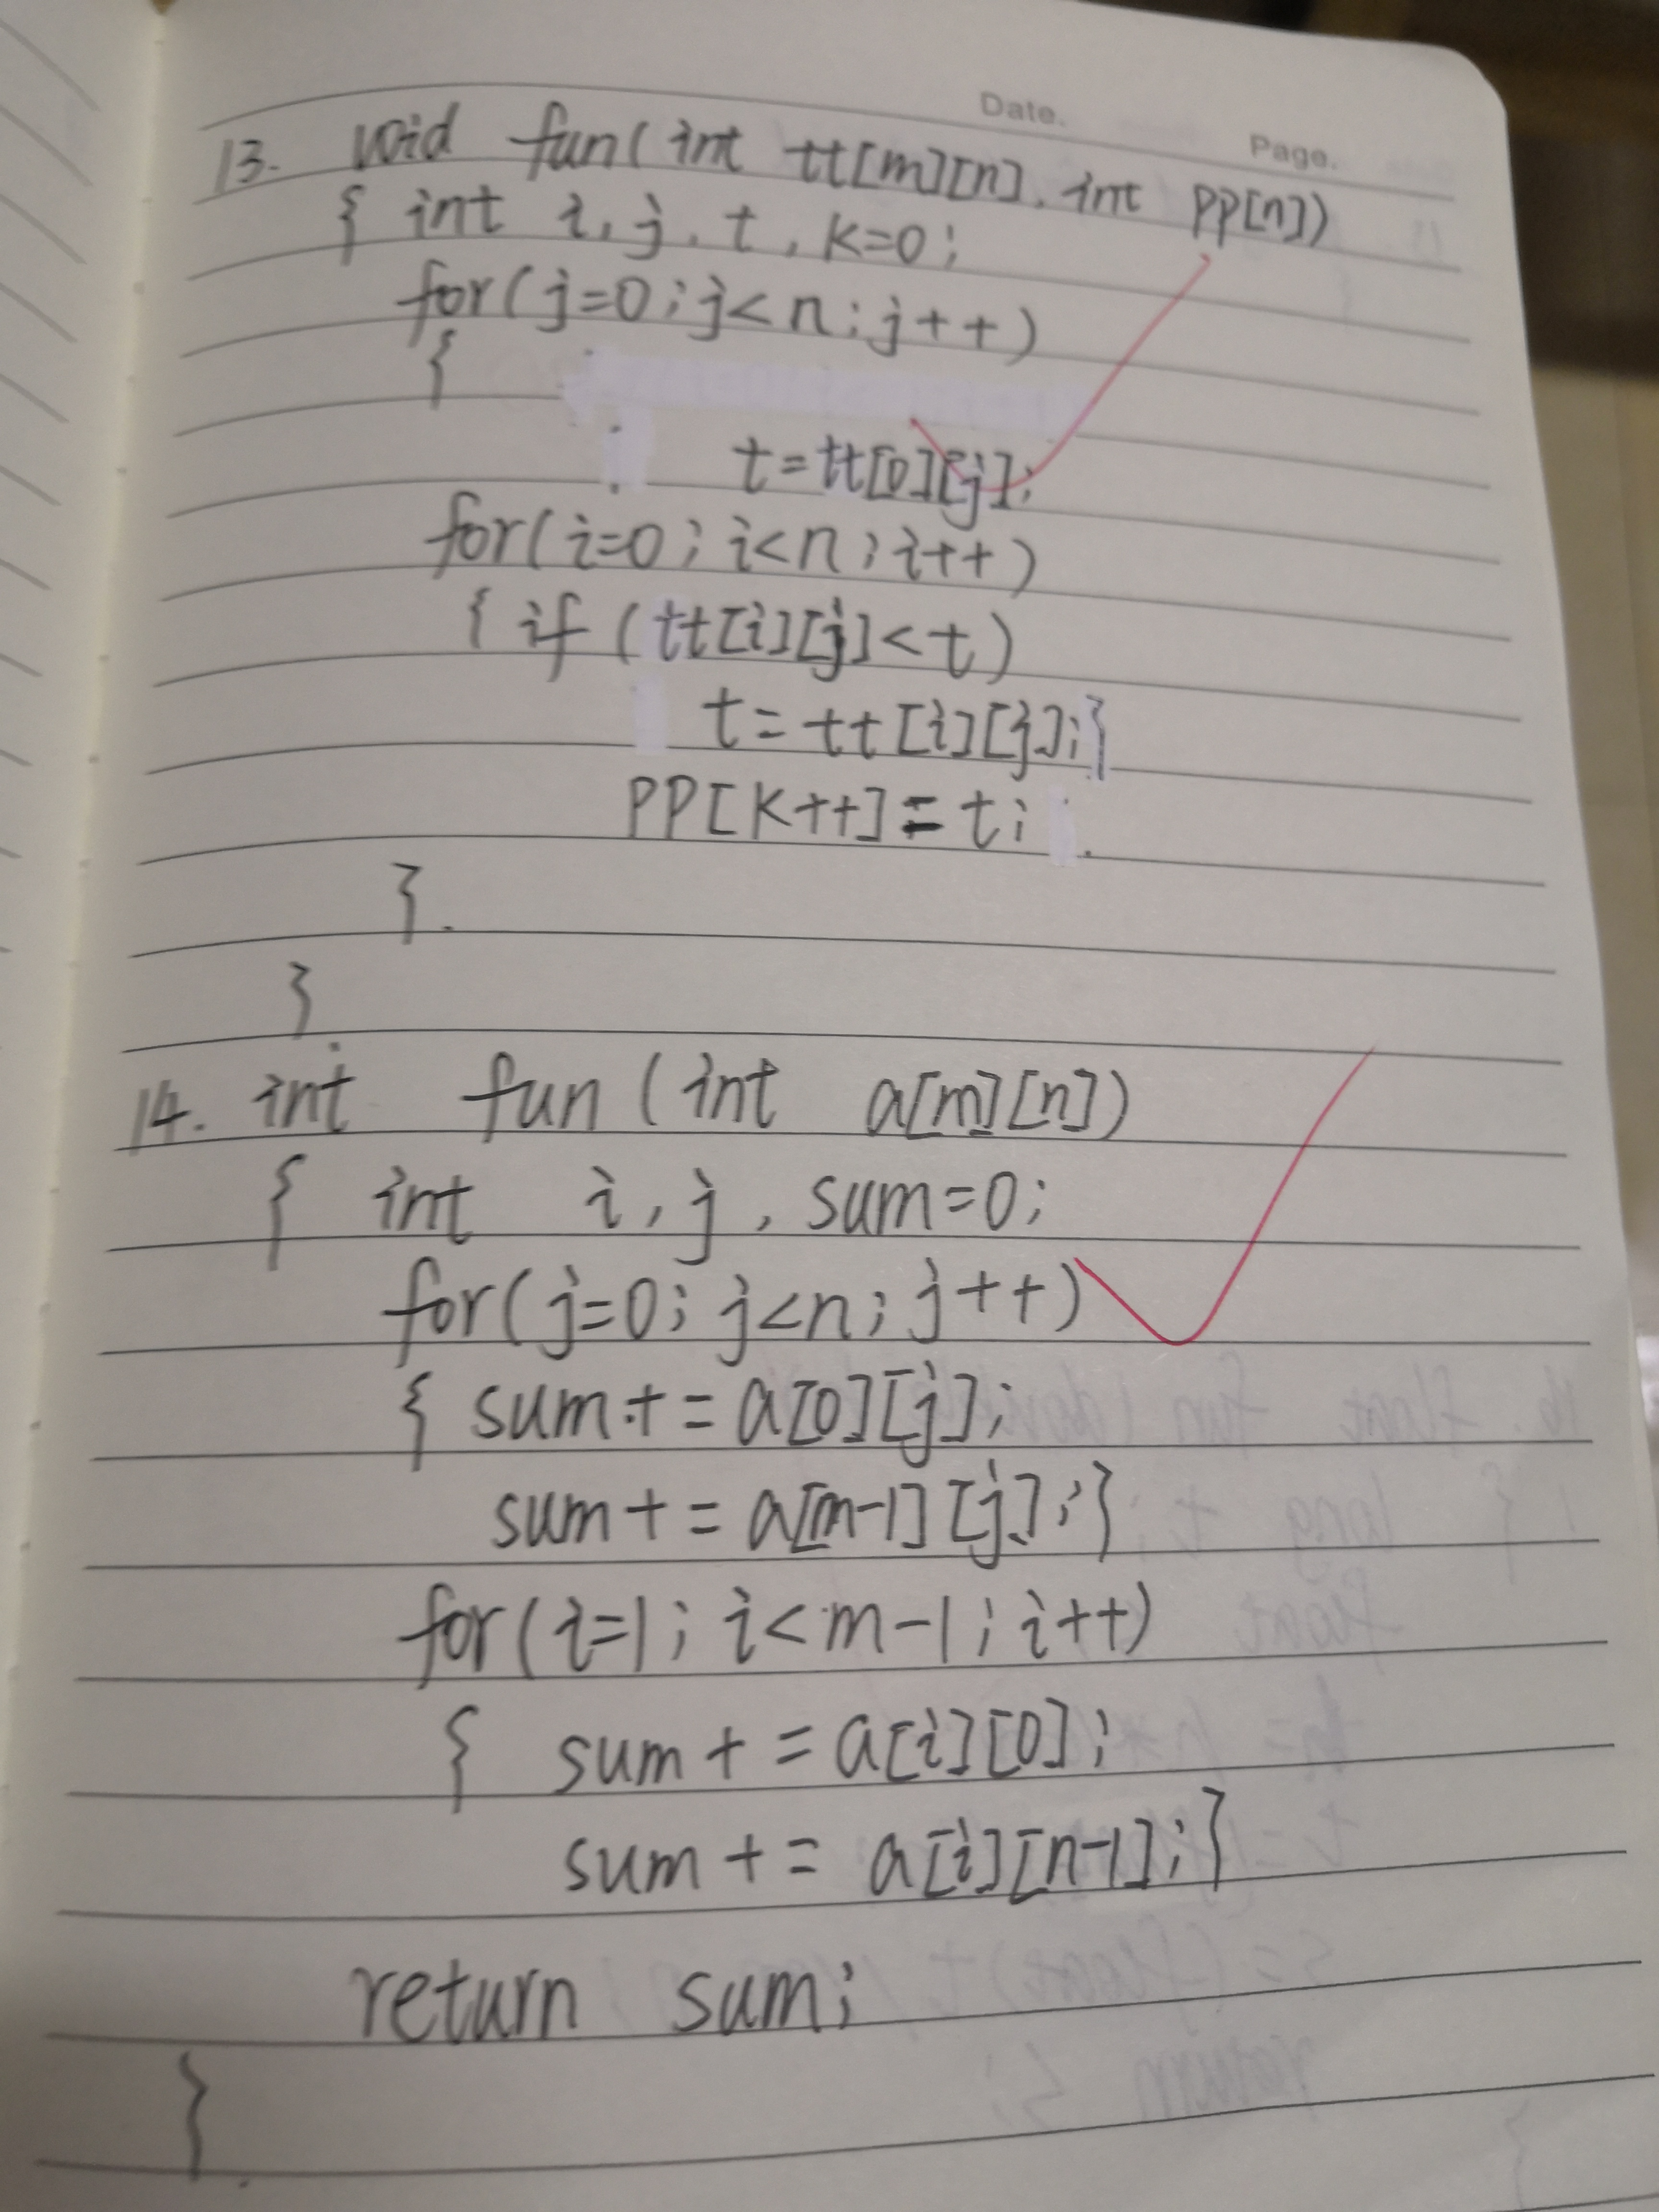 Date.
Page.
13. void fun(int tt[m][n], int pp[n])
{ int i, j, t, k=0;
for(j=0;j<n;j++)
{
t=tt[0][j];
for(i=0;i<n;i++)
{ if (tt[i][j]<t)
t=tt[i][j];}
PP[K++]=t;
}.
}
14. int fun(int a[m][n])
{ int i, j, sum=0;
for(j=0;j<n;j++)
{ sum+=a[0][j];
sum+=a[m-1][j];}
for(i=1;i<m-1;i++)
{ sum+=a[i][0];
sum+=a[i][n-1];}
return sum;
}